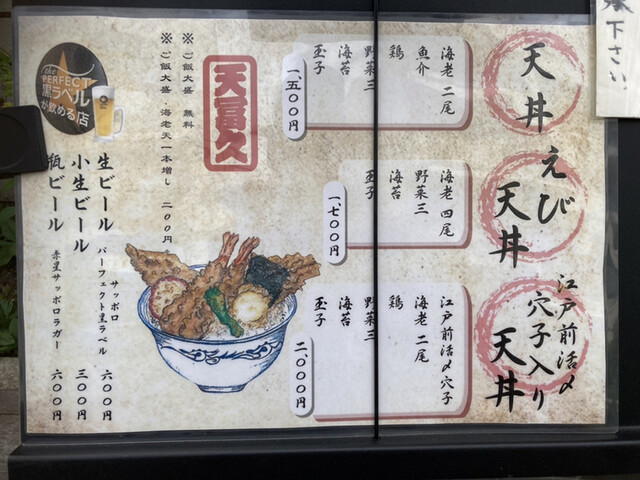 天丼
海老 二尾
魚介
鶏
野菜三
海苔
玉子
一、五〇〇円
えび
天丼
海老 四尾
野菜三
海苔
玉子
一、七〇〇円
江戸前活〆
穴子入り
天丼
江戸前活〆穴子
海老 二尾
鶏
野菜三
海苔
玉子
二、〇〇〇円
天冨久
※ご飯大盛 無料
※ご飯大盛・海老天一本増し 二〇〇円
the
PERFECT
黒ラベル
が飲める店
生ビール サッポロ
パーフェクト黒ラベル 六〇〇円
小生ビール 三〇〇円
瓶ビール 赤星サッポロラガー 六〇〇円
下さい